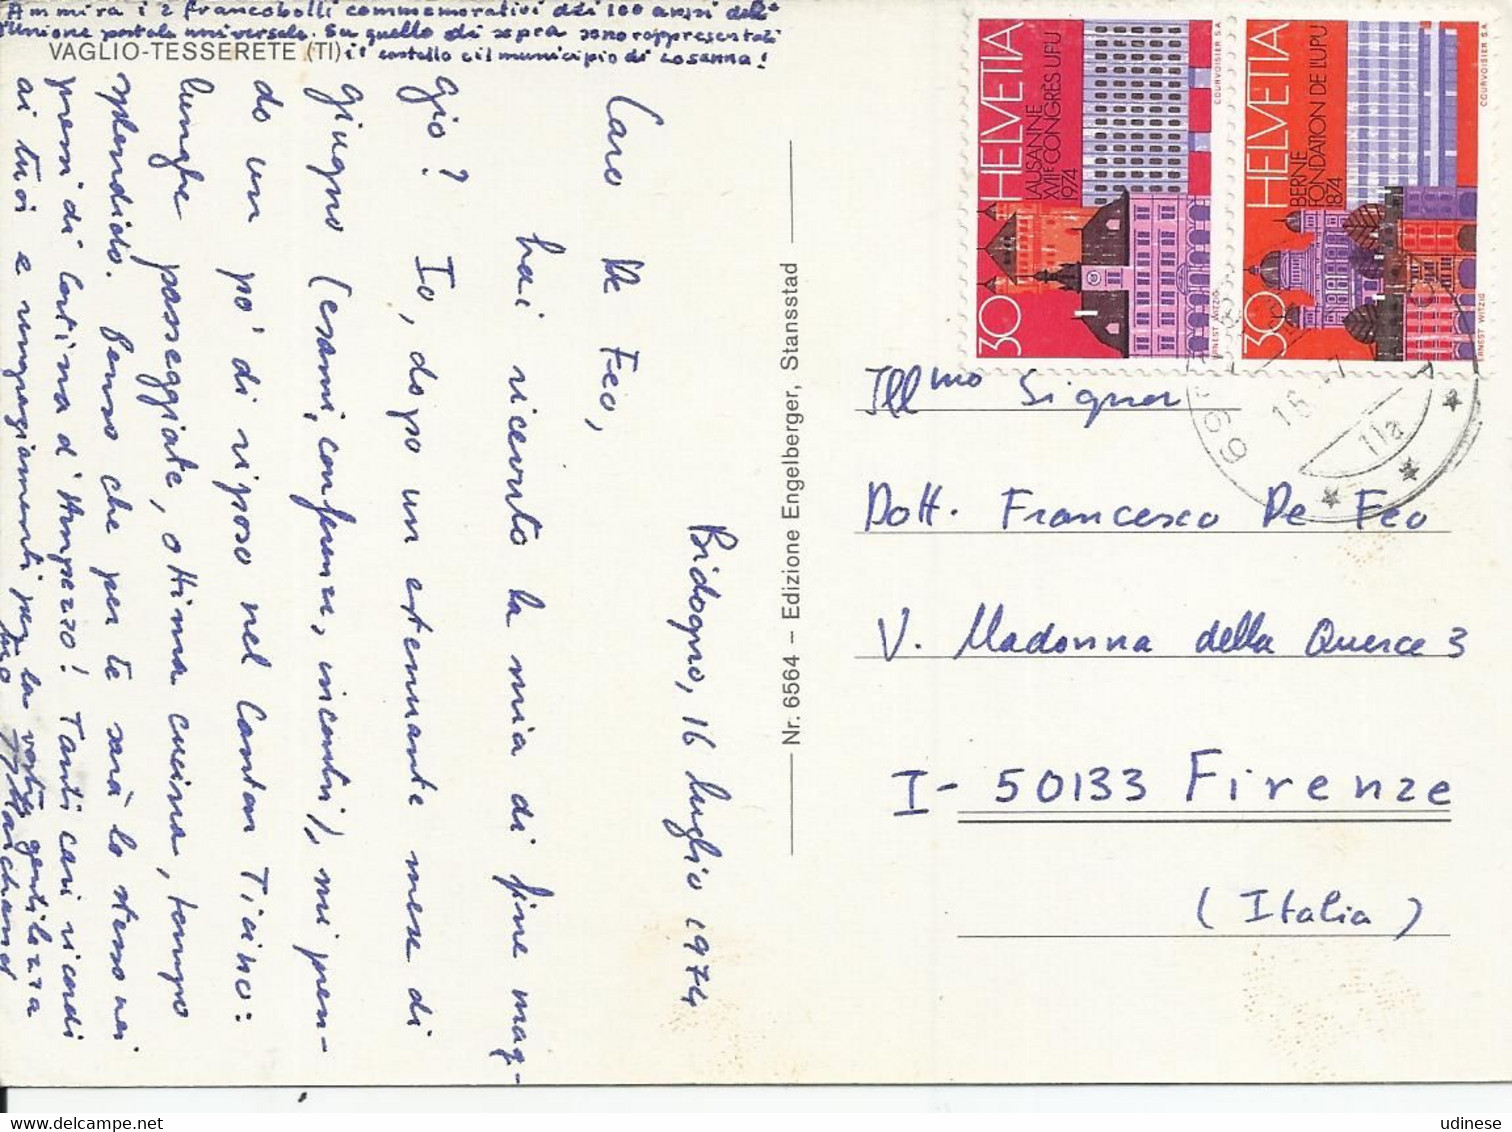 Ammira i 2 francobolli commemorativi dei 100 anni del-
l'Unione postale universale. Su quello di sopra sono rappresentati
il castello e il municipio di Losanna!
VAGLIO-TESSERETE (TI)
Bidogno, 16 luglio 1974
Caro De Feo,
hai ricevuto la mia di fine mag-
gio? Io, dopo un estenuante mese di
giugno (esami, conferenze, incontri), mi pren-
do un po' di riposo nel Canton Ticino:
lunghe passeggiate, ottima cucina, tempo
splendido. Penso che per te sarà lo stesso nei
pressi di Cortina d'Ampezzo! Tanti cari ricordi
ai tuoi e ringraziamenti per la vostra gentilezza
tuo
Nr. 6564 – Edizione Engelberger, Stansstad
HELVETIA
LAUSANNE
XVIIe CONGRÈS UPU
1974
30
COURVOISIER S.A.
ERNEST WITZIG
HELVETIA
BERNE
FONDATION DE L'UPU
1874
30
COURVOISIER S.A.
ERNEST WITZIG
69
16
11a
Ill.mo Signor
Dott. Francesco De Feo
V. Madonna della Querce 3
I- 50133 Firenze
(Italia)
udinese